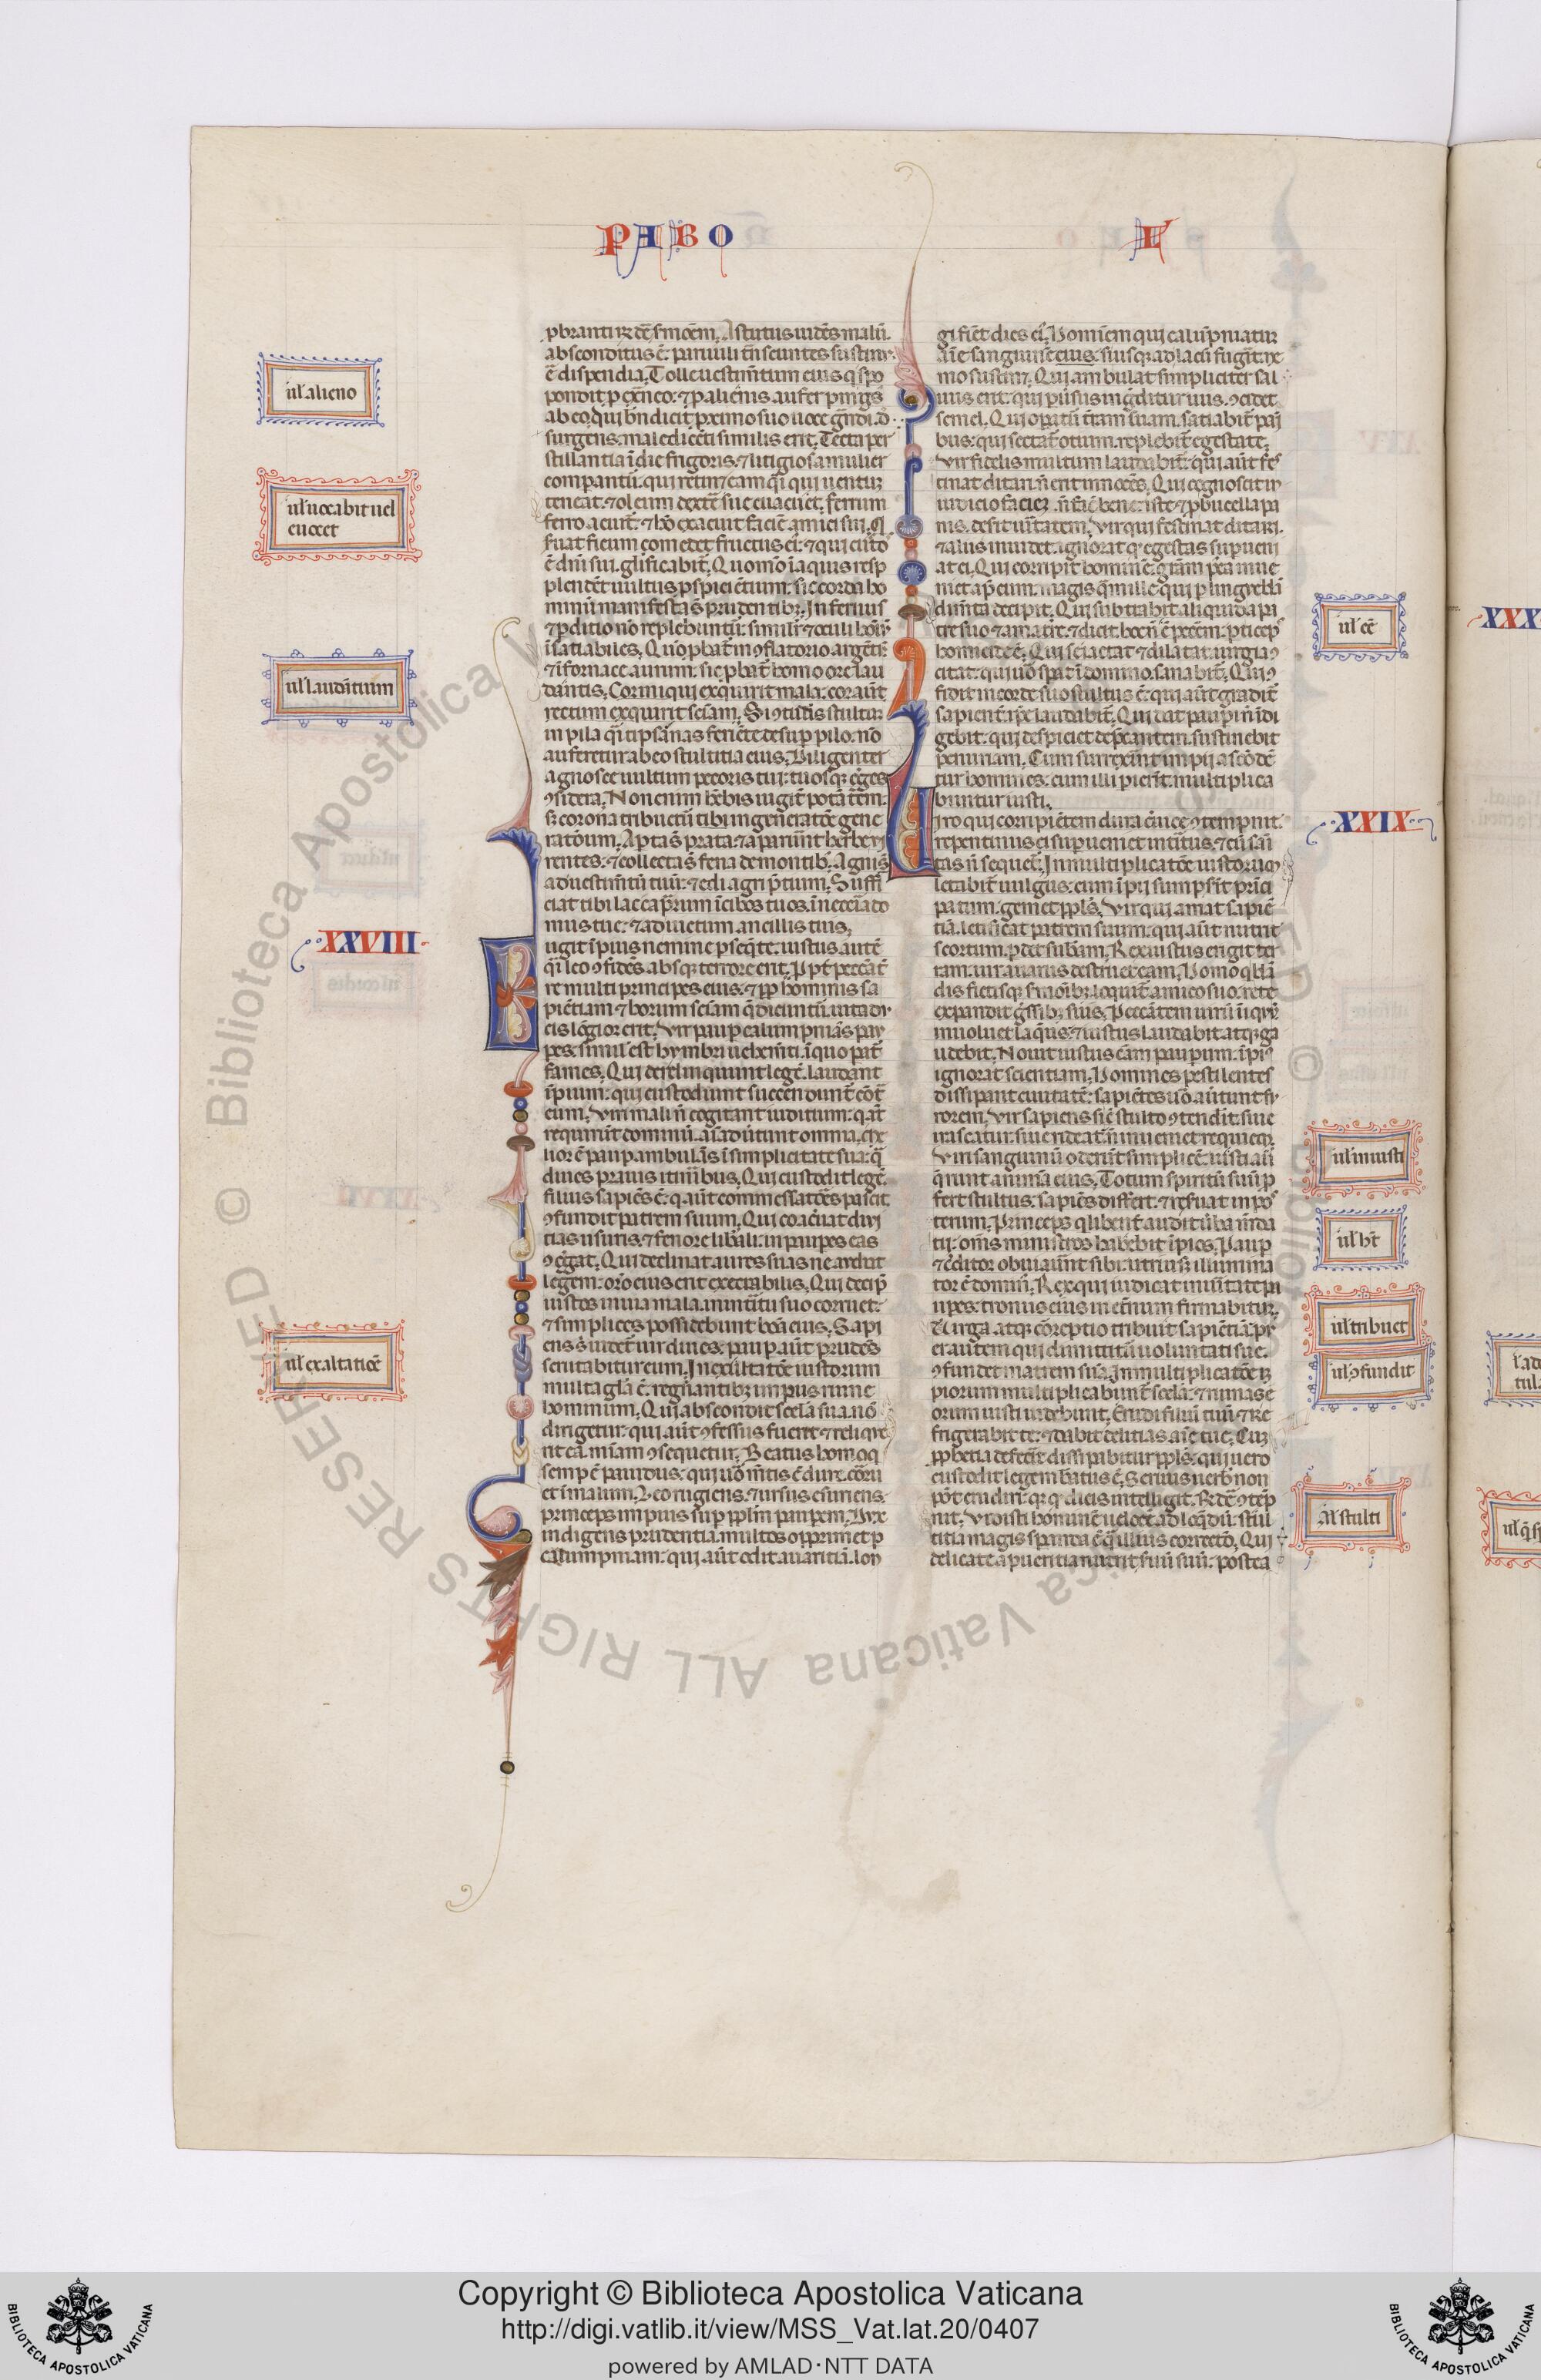 PABO
L
p̱brant̄ iz dc̄ s̄moēm. Astutus uidēs malū.
absconditus ē. paruuli t̄n seūntes sustinue
ē dispendia. Tolle uestim̄tum eius q̄ spo
pondit p̱ ex̄neo: ⁊ p̱ alienis aufer pings
ab eo. Qui bn̄dicit p̱ximo suo uoce g̅ndi. d̄
surgens: maledicēti similis erit. Tecta per
stillantia ī die frigoris. ⁊ litigiosa mulier
compant̄ū. qui retinet eam q̄i qui uentuz
teneat. ⁊ oleum dext̄e sue euacuet. ferrum
ferro acuit̄. ⁊ hō exacuit faciē amici sui. Q̄
suat ficum comedet fructus ei: ⁊ qui custō
ē dn̄i sui. glificabit̄. Quomō ī aquis resp
plendēt uultus p̱spiciētium: sic corda ho
minū manifesta s̄ prudentibz. Infernus
⁊ p̱ditio nō replebuntū: simili ⁊ oculi hoīū
īsatiabiles. Quō p̱bat̄ in ꝯflatorio argētū
⁊ ī fornace aurum: sic p̱bat̄ homo ore lau
dantis. Cor iniqui exquirit mala: cor aūt
rectum exquirit sciam. Si ꝯtudis stultuz
in pila q̄i tipsanas feriēte desup̱ pilo: nō
aufereturab eo stultitia eius. Diligenter
agnosce uultum pecoris tui: tuosqz g̅ges
ꝯsidera. Non enim hēbis iugit̄ potatēm:
s̄ corona tribuetū tibi in generatōe gene
ratoum. Apta s̄ prata: ⁊ aparuūt herbe ui
rentes: ⁊ collecta s̄ fena de montib. Agnus
ad uestim̄tū tuū: ⁊ edi agri p̄tium. Suffi
ciat tibi lac cap̄rum ī cibos tuos. in nccīa do
mus tue: ⁊ ad uictum ancillis tuis.
XXVIII
Fugit īpius nemine p̱seq̄te: iustus autē
q̄i leo ꝯfidēs absqz terrore erit. Ppt̄ peccāt̄
re multi principes eius: ⁊ pp̱ hominis sa
piētiam ⁊ horum sciam q̄ dicuntū. uita du
cis lōgior erit. Vir paup̱ calumpniās pau
pes: simul est hymbri uehem̄ti. ī quo pat̄
fames. Qui derelinquunt legē. laudant
īpium: qui custodiunt succendunt̄ cōt̄
eum. Viri mali n̄ cogitant iuditium: q̄ aūt
requirūt dominū. aīaduertunt omnia. Me
lior ē paup̱ ambulās ī simplicitate sua: q̄
diues prauis itinibus. Qui custodit legē.
filius sapiēs ē: q̄ aūt commessatoēs pascit.
ꝯfundit patrem suum. Qui coaceruat diui
tias usuris. ⁊ fenore libali: in paupes eas
ꝯg̅gat. Qui declinat aures suas ne audiat
legem: or̄o eius erit execrabilis. Qui decip̄
iustos in uia mala. in int̄itu suo corruet:
⁊ simplices possidebunt bōa eius. Sapi
ens s̄ uidet̄ uir diues: paup̱ aūt prudēs
scrutabitur eum. In exultatōe iustorum
multa gl̄a ē. regnantibz impus ruine
hominum. Qui abscondit scela sua. nō
dirigetur: qui aūt ꝯfessus fuerit ⁊ relique
rit ea. m̄iam ꝯsequetur. Beatus homo q̄
semp̱ ē pauidus: qui uō m̄tis ē dure. corru
et ī malum. Leo rugiens. ⁊ ursus esuriens:
princeps impius sup̱ pplm̄ paupem. Dux
indigens prudentia. multos opprimet p̱
calumpniam: qui aūt odit auaritiā. lon
gi fiēt dies ei. Hominem qui calūpniatur
aīe sanguinē eius: si usqz ad lacū fugīt. ne
mo sustin̄. Qui ambulat simpliciter sal
uus erit: qui p̱uisus īg̅ditur uiis. ꝯcidet
semel. Qui opat̄ t̄ram suam. satiabit̄ pai
bus: qui sectat̄ otium. replebit̄ egestate.
Vir fidelis multum laudabit̄: qui aūt fes
tinat ditari. n̄ erit innocēs. Qui cognoscit in
iudicio faciez. n̄ facit bene: iste ⁊ p̱ bucella pa
nis. deserit uitatem. Vir qui festinat ditari.
⁊ aliis inuidet: ignorat q̄ egestas supueni
at ei. Qui corripit homine. gr̄am p̱ea inue
niet ap̱ eum: magis q̄ ille qui p̱ lingue bla
dim̄ta decipit. Qui subtrahit aliquid a pa
tre suo ⁊ a matre. ⁊ dicit hoc n̄ ē pecctm̄: p̱ticeps
homicide ē. Qui se iactat ⁊ dilatat. iurgia ꝯ
citat: qui uō spat̄ ī domino. sanabit̄. Qui ꝯ
fidit in corde suo stultus ē: qui aūt gradit̄
sapient̄. ip̄e laudabit̄. Qui dat paup̱i n̄ īdi
gebit: qui despicit dep̱cantem. sustinebit
penuriam. Cum surrexīnt impii ascōdē
tur homines: cum illi pierīt. multiplica
buntur iusti.
XXIX
Uiro qui corripiētem dura ceruice ꝯtempnit:
repentinus ei supueniet int̄itus. ⁊ eū sāi
tas n̄ sequet̄. In multiplicatōe iustoruꝯ
letabit̄ uulgus: cum īpii sumpsīt princi
patum. gemet ppls̄. Vir qui amat sapiē
tiā. letificat patrem suum: qui aūt nutrit
scortum. p̱det substam. Rex iustus erigit ter
ram: uir auarus destruet eam. Homo q̄ bla
dis fictisqz smoibz loquit̄ amico suo: rete
expandit g̅ssibz suis. Peccātem uirū iniqū
inuoluet laqus: ⁊ iustus laudabit. atqz ga
udebit. Nouit iustus cām paupum: īpius
ignorat scientiam. Homines pestilentes
dissipant ciuitatē: sapiētes uō auertunt fu
rorem. Vir sapiens si cū stulto ꝯtendit: siue
irascatur. siue rideat. n̄ inueniet requieꝫ.
Viri sanguinū oderūt simplicē: iusti aūt
q̄runt animā eius. Totum spiritū suū p̱
fert stultus: sapiēs differt. ⁊ reseruat in pos
terum. Princeps q̄ libent̄ audit ūba m̄da
tii: om̄s ministros habebit īpios. Paup̱
⁊ creditor obuiauerūt sibi: utriusqz illumina
tor ē domin̄. Rex qui iudicat in uītate pau
upes: tronus eius in et̄num firmabitur.
Uirga. atqz correptio tribuit sapiētiā: pu
er autem qui dimittitū uoluntati sue.
ꝯfundet matrem suā. In multiplicatōe īz
piorum multiplicabunt̄ scela: ⁊ ruinas e
orum iusti uidebunt. Erudi filiū tuū ⁊ re
frigerabit te: ⁊ dabit delitias aīe tue. Cuz
pp̱hetia defecit dissipabitur ppls̄: qui uero
custodit legem b̄atus ē. Seruus uerb̄ non
pōt erudiri: q̄r q̄ dicis intelligit. ⁊ rdē ꝯtēp̱
nit. Vidisti hominē uelocē ad loq̄dū: stul
titia magis speranda ē q̄ illius correctō. Qui
delicate a pueritia nutrit seruū suū: postea
ul̄ alieno
ul̄ uocabit uel
euocet
ul̄ laudātium
ul̄ exaltatiōe
ul̄ eē
ul̄ iniusti
ul̄ h̄t
ul̄ tribuet
ul̄ ꝯfundit
Al̄ stulti
XXX
Copyright © Biblioteca Apostolica Vaticana
http://digi.vatlib.it/view/MSS_Vat.lat.20/0407
powered by AMLAD·NTT DATA
BIBLIOTECA APOSTOLICA VATICANA
BIBLIOTECA APOSTOLICA VATICANA
© Biblioteca Apostolica Vaticana ALL RIGHTS RESERVED